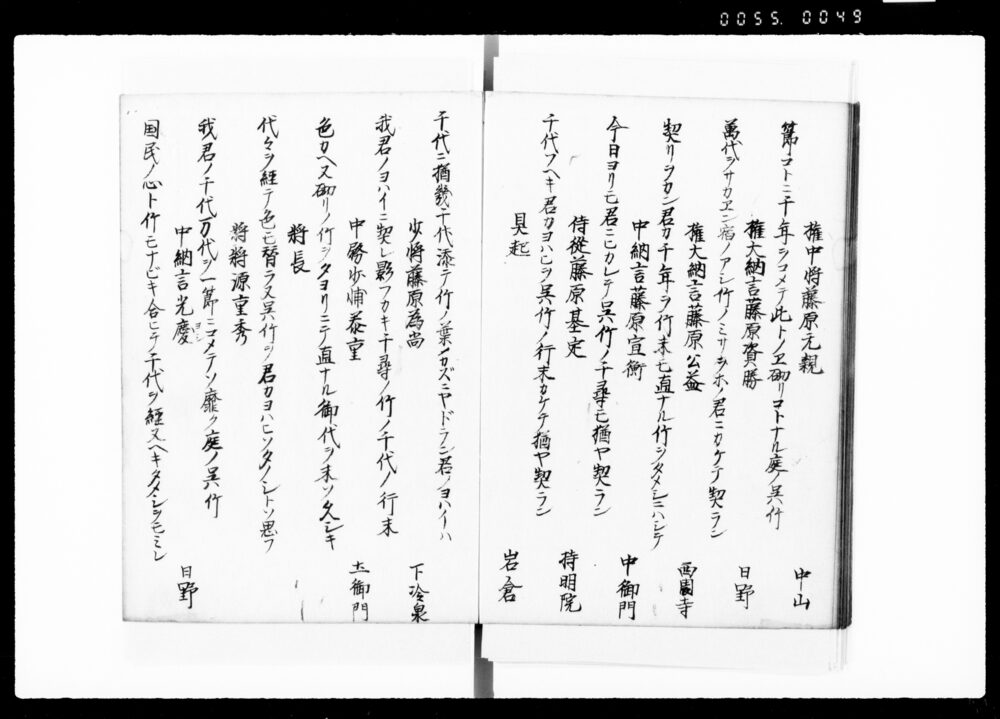 0055.0049
権中将藤原元親 中山
節コトニ千年ヲコメテ此トノヱ砌リコトナル庭ノ呉竹
権大納言藤原資勝 日野
萬代ヲサカヱン宿ノアシ竹ノミサヲホノ君ニカケテ契ラン
権大納言藤原公益 西園寺
契リヲカン君カ千年ヲ行末モ直ナル竹ヲタメシニハシテ
中納言藤原宣衡 中御門
今日ヨリモ君ニヒカレテ呉竹ノ千尋モ猶ヤ契ラン
侍従藤原基定 持明院
千代フヘキ君カヨハヒヲ呉竹ノ行末カケテ猶ヤ契ラン
具起 岩倉
千代ニ猶幾千代添テ竹ノ葉ノカズニヤドラン君ノヨハイハ
少将藤原為尚 下冷泉
我君ノヨハイニ契レ影フカキ千尋ノ竹ノ千代ノ行末
中務少浦泰重 土御門
色カヘヌ砌リノ竹ヲタヨリニテ直ナル御代ヲ末ソ久シキ
將長
代々ヲ経テ色モ替ラヌ呉竹ヲ君カヨハヒソタノシトソ思フ
将将源重秀
我君ノ千代万代ヲ一節ニコメテソ靡ク庭ノ呉竹
中納言光慶 ヨシ 日野
国民ノ心ト竹モナビキ合ヒテ千代ヲ経ヌヘキタメシヲモミレ